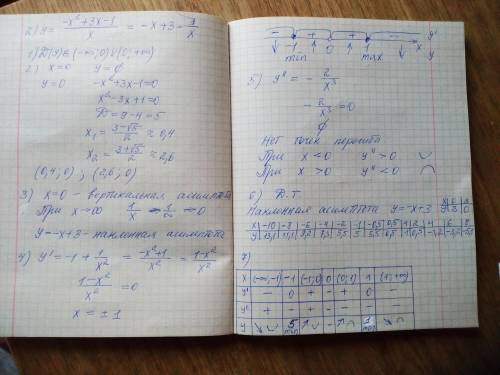 2) y = (-x²+3x-1)/x = -x+3-1/x
1) D(y)∈(-∞;0)∪(0;+∞)
2) x=0 y=∅
y=0 -x²+3x-1=0
x²-3x+1=0
D=9-4=5
x₁ = (3-√5)/2 ≈ 0,4
x₂ = (3+√5)/2 ≈ 2,6
(0,4;0) ; (2,6;0)
3) x=0 - вертикальная асимптота
При x→∞
y=-x+3 - наклонная асимптота
4) y' = -1 + 1/x² = (-x²+1)/x² = (1-x²)/x²
(1-x²)/x² = 0
x = ±1
- + + - y'
-1 0 1 x
min max y
5) y'' = - 2/x³
- 2/x³ = 0
∅
Нет точек перегиба
При x<0 y''>0 ◡
При x>0 y''<0 ◠
6) Д.Т.
Наклонная асимптота y=-x+3
7)
x (-∞;-1) -1 (-1;0) 0 (0;1) 1 (1;+∞)
y' - 0 + - + 0 -
y'' + - + - - - -
y ↘◡ 5 min ↗◡ - ↗◠ 1 max ↘◠